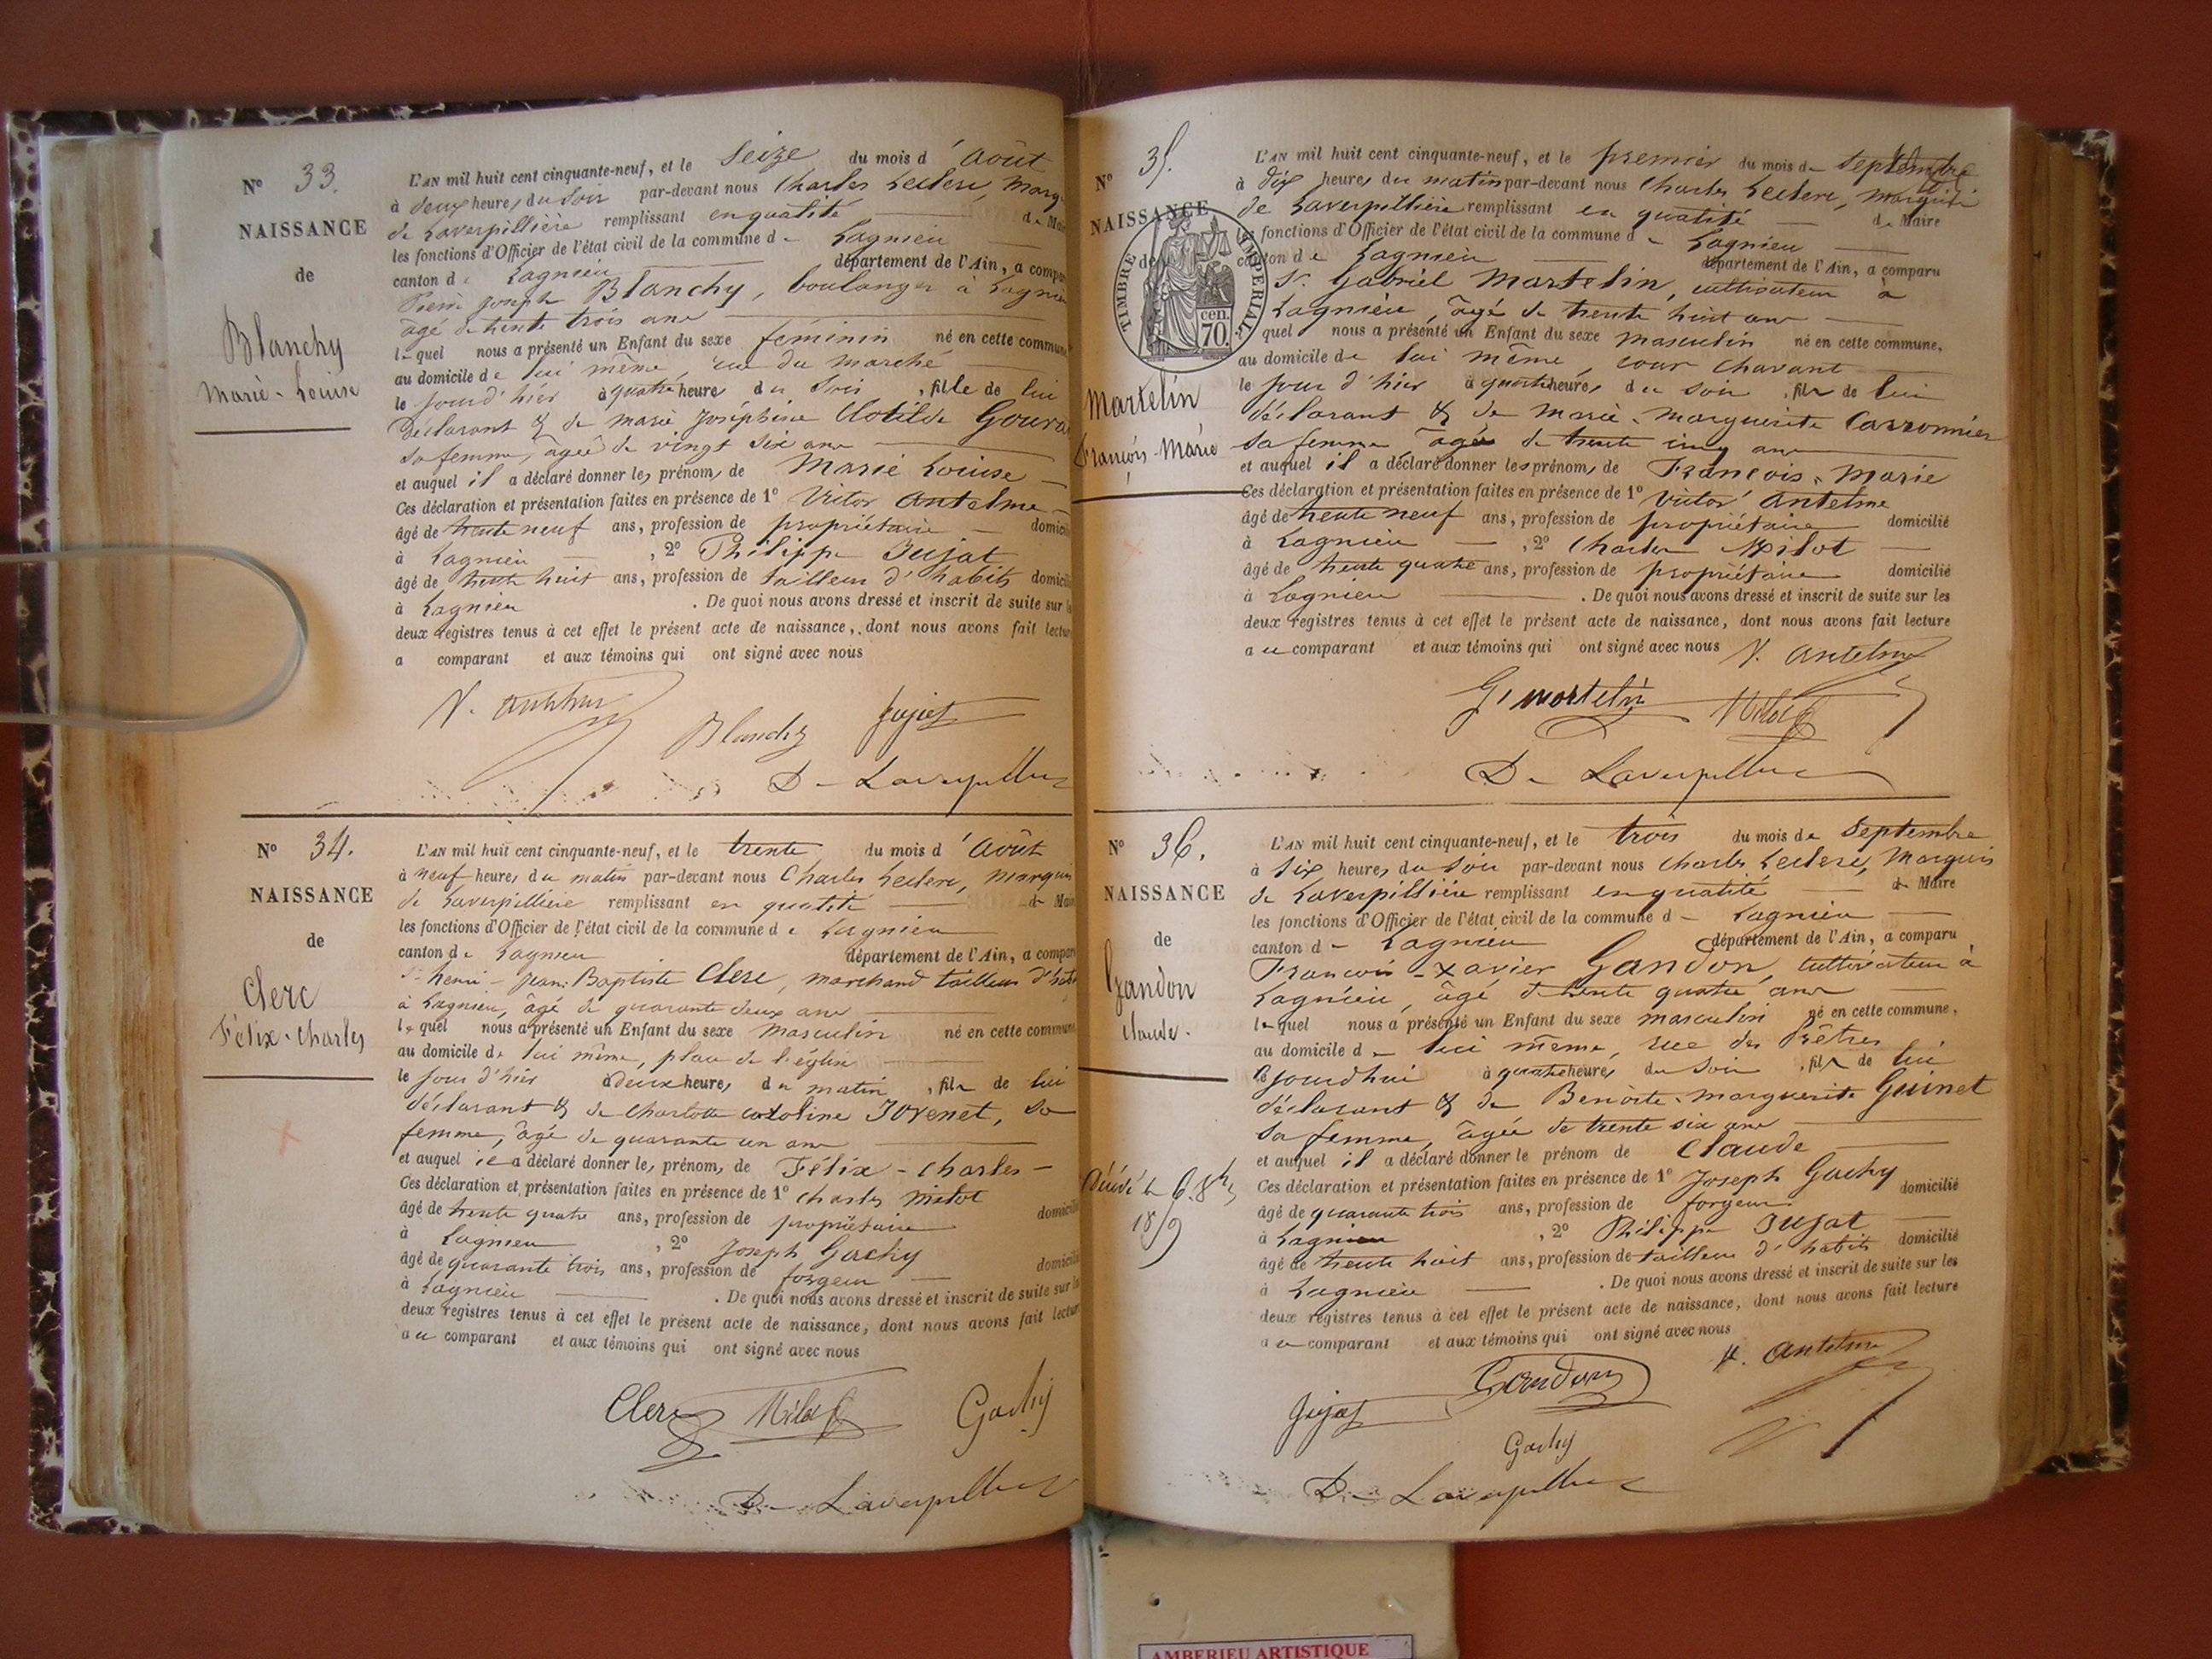 N° 33.
NAISSANCE
de
Blanchy
Marie-Louise
L'AN mil huit cent cinquante-neuf, et le Seize du mois d'Août
à deux heures du soir par-devant nous Charles Leclerc, Marq
de Laverpillière remplissant en qualité de Mai
les fonctions d'Officier de l'état civil de la commune de Lagnieu
canton de Lagnieu département de l'Ain, a compa
Pierre Joseph Blanchy, boulanger à Lagnie
âgé de trente trois ans
lequel nous a présenté un Enfant du sexe féminin né en cette commune
au domicile de lui même, rue du marché
le jour d'hier à quatre heures du soir, fille de lui
déclarant & de marie Joséphine Clotilde Gour
sa femme, âgée de vingt six ans
et auquel il a déclaré donner les prénoms de Marie Louise
Ces déclaration et présentation faites en présence de 1° Victor Antelme
âgé de trente neuf ans, profession de propriétaire domicil
à Lagnieu, 2° Philippe Jujat
âgé de trente huit ans, profession de tailleur d'habits domicil
à Lagnieu. De quoi nous avons dressé et inscrit de suite sur l
deux registres tenus à cet effet le présent acte de naissance, dont nous avons fait lectur
a comparant et aux témoins qui ont signé avec nous
V. Antelme
Blanchy Jujat
De Laverpillière
N° 34.
NAISSANCE
de
Clerc
Félix-Charles
L'AN mil huit cent cinquante-neuf, et le trente du mois d'Août
à neuf heures du matin par-devant nous Charles Leclerc, marquis
de Laverpillière remplissant en qualité de Mai
les fonctions d'Officier de l'état civil de la commune de Lagnieu
canton de Lagnieu département de l'Ain, a compar
Sr henri-Jean-Baptiste Clerc, marchand tailleur d'hab
à Lagnieu, âgé de quarante deux ans
lequel nous a présenté un Enfant du sexe masculin né en cette commune
au domicile de lui même, place de l'église
le jour d'hier à deux heures du matin, fils de lui
déclarant & de Charlotte caroline Jovenet, sa
femme, âgé de quarante un ans
et auquel il a déclaré donner les prénoms de Félix-Charles
Ces déclaration et présentation faites en présence de 1° Charles Milot
âgé de trente quatre ans, profession de propriétaire domicil
à Lagnieu, 2° Joseph Gachy
âgé de quarante trois ans, profession de forgeur domicil
à Lagnieu. De quoi nous avons dressé et inscrit de suite sur le
deux registres tenus à cet effet le présent acte de naissance, dont nous avons fait lectur
au comparant et aux témoins qui ont signé avec nous
Clerc Milot Gachy
De Laverpillière
N° 35.
NAISSANCE
de
TIMBRE IMPERIAL
70 cen.
Martelin
François-Marie
L'AN mil huit cent cinquante-neuf, et le premier du mois de Septembre
à dix heures du matin par-devant nous Charles Leclerc, marquis
de Laverpillière remplissant en qualité de Maire
les fonctions d'Officier de l'état civil de la commune de Lagnieu
canton de Lagnieu département de l'Ain, a comparu
Sr Gabriel Martelin, cultivateur à
Lagnieu, âgé de trente huit ans
quel nous a présenté un Enfant du sexe masculin né en cette commune,
au domicile de lui même, cour Chavant
le jour d'hier à quatre heures du soir, fils de lui
déclarant & de Marie-Marguerite Carronnier
sa femme âgée de trente cinq ans
et auquel il a déclaré donner les prénoms de François-Marie
Ces déclaration et présentation faites en présence de 1° Victor Antelme
âgé de trente neuf ans, profession de propriétaire domicilié
à Lagnieu, 2° Charles Milot
âgé de trente quatre ans, profession de propriétaire domicilié
à Lagnieu. De quoi nous avons dressé et inscrit de suite sur les
deux registres tenus à cet effet le présent acte de naissance, dont nous avons fait lecture
au comparant et aux témoins qui ont signé avec nous V. Antelme
G. martelin Milot
De Laverpillière
N° 36.
NAISSANCE
de
Gandon
Claude.
Décédé le 6. 8bre
1859
L'AN mil huit cent cinquante-neuf, et le trois du mois de Septembre
à six heures du soir par-devant nous Charles Leclerc, Marquis
de Laverpillière remplissant en qualité de Maire
les fonctions d'Officier de l'état civil de la commune de Lagnieu
canton de Lagnieu département de l'Ain, a comparu
François-Xavier Gandon, cultivateur à
Lagnieu, âgé de trente quatre ans
lequel nous a présenté un Enfant du sexe masculin né en cette commune,
au domicile de lui même, rue des Prêtres
ajourdhui à quatre heures du soir, fils de lui
déclarant & de Benoite-marguerite Guinet
sa femme, âgée de trente six ans
et auquel il a déclaré donner le prénom de Claude
Ces déclaration et présentation faites en présence de 1° Joseph Gachy
âgé de quarante trois ans, profession de forgeur domicilié
à Lagnieu, 2° Philippe Jujat
âgé de trente huit ans, profession de tailleur d'habits domicilié
à Lagnieu. De quoi nous avons dressé et inscrit de suite sur les
deux registres tenus à cet effet le présent acte de naissance, dont nous avons fait lecture
au comparant et aux témoins qui ont signé avec nous
Jujat Gandon V. Antelme
Gachy
De Laverpillière
AMBERIEU ARTISTIQUE